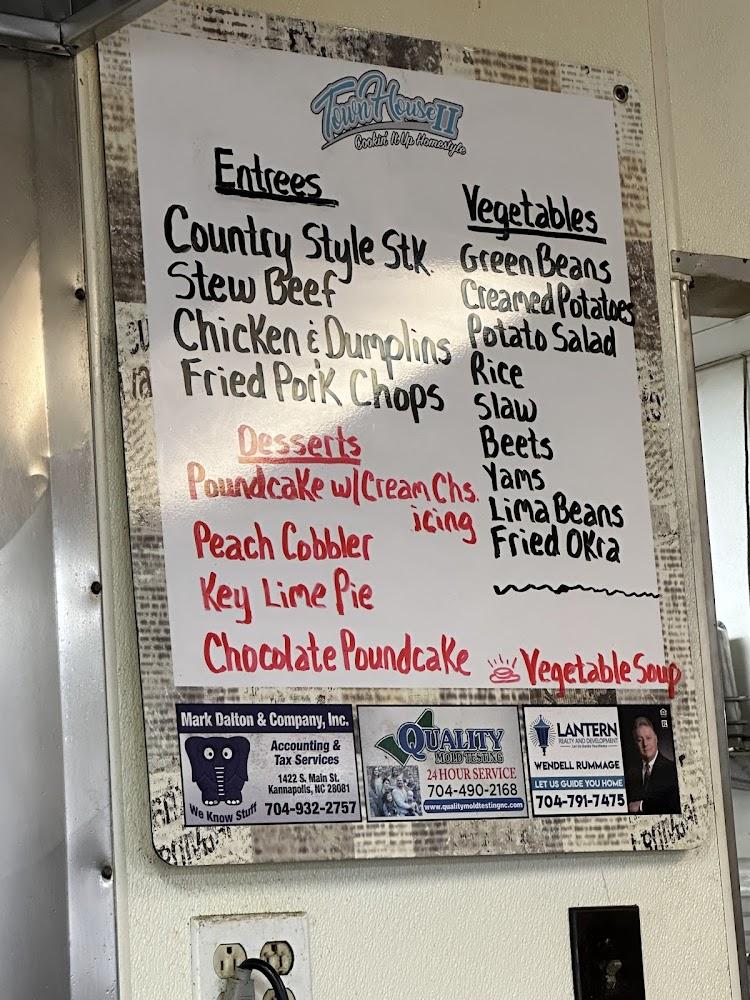 Town House II
Cookin' It Up Homestyle
Entrees
Country Style Stk.
Stew Beef
Chicken & Dumplins
Fried Pork Chops
Desserts
Poundcake w/Cream Chs.
icing
Peach Cobbler
Key Lime Pie
Chocolate Poundcake
Vegetables
Green Beans
Creamed Potatoes
Potato Salad
Rice
Slaw
Beets
Yams
Lima Beans
Fried Okra
Vegetable Soup
Mark Dalton & Company, Inc.
Accounting &
Tax Services
1422 S. Main St.
Kannapolis, NC 28081
We Know Stuff
704-932-2757
QUALITY
MOLD TESTING
24 HOUR SERVICE
704-490-2168
www.qualitymoldtestingnc.com
LANTERN
REALTY AND DEVELOPMENT
Let Us Guide You Home
WENDELL RUMMAGE
LET US GUIDE YOU HOME
704-791-7475